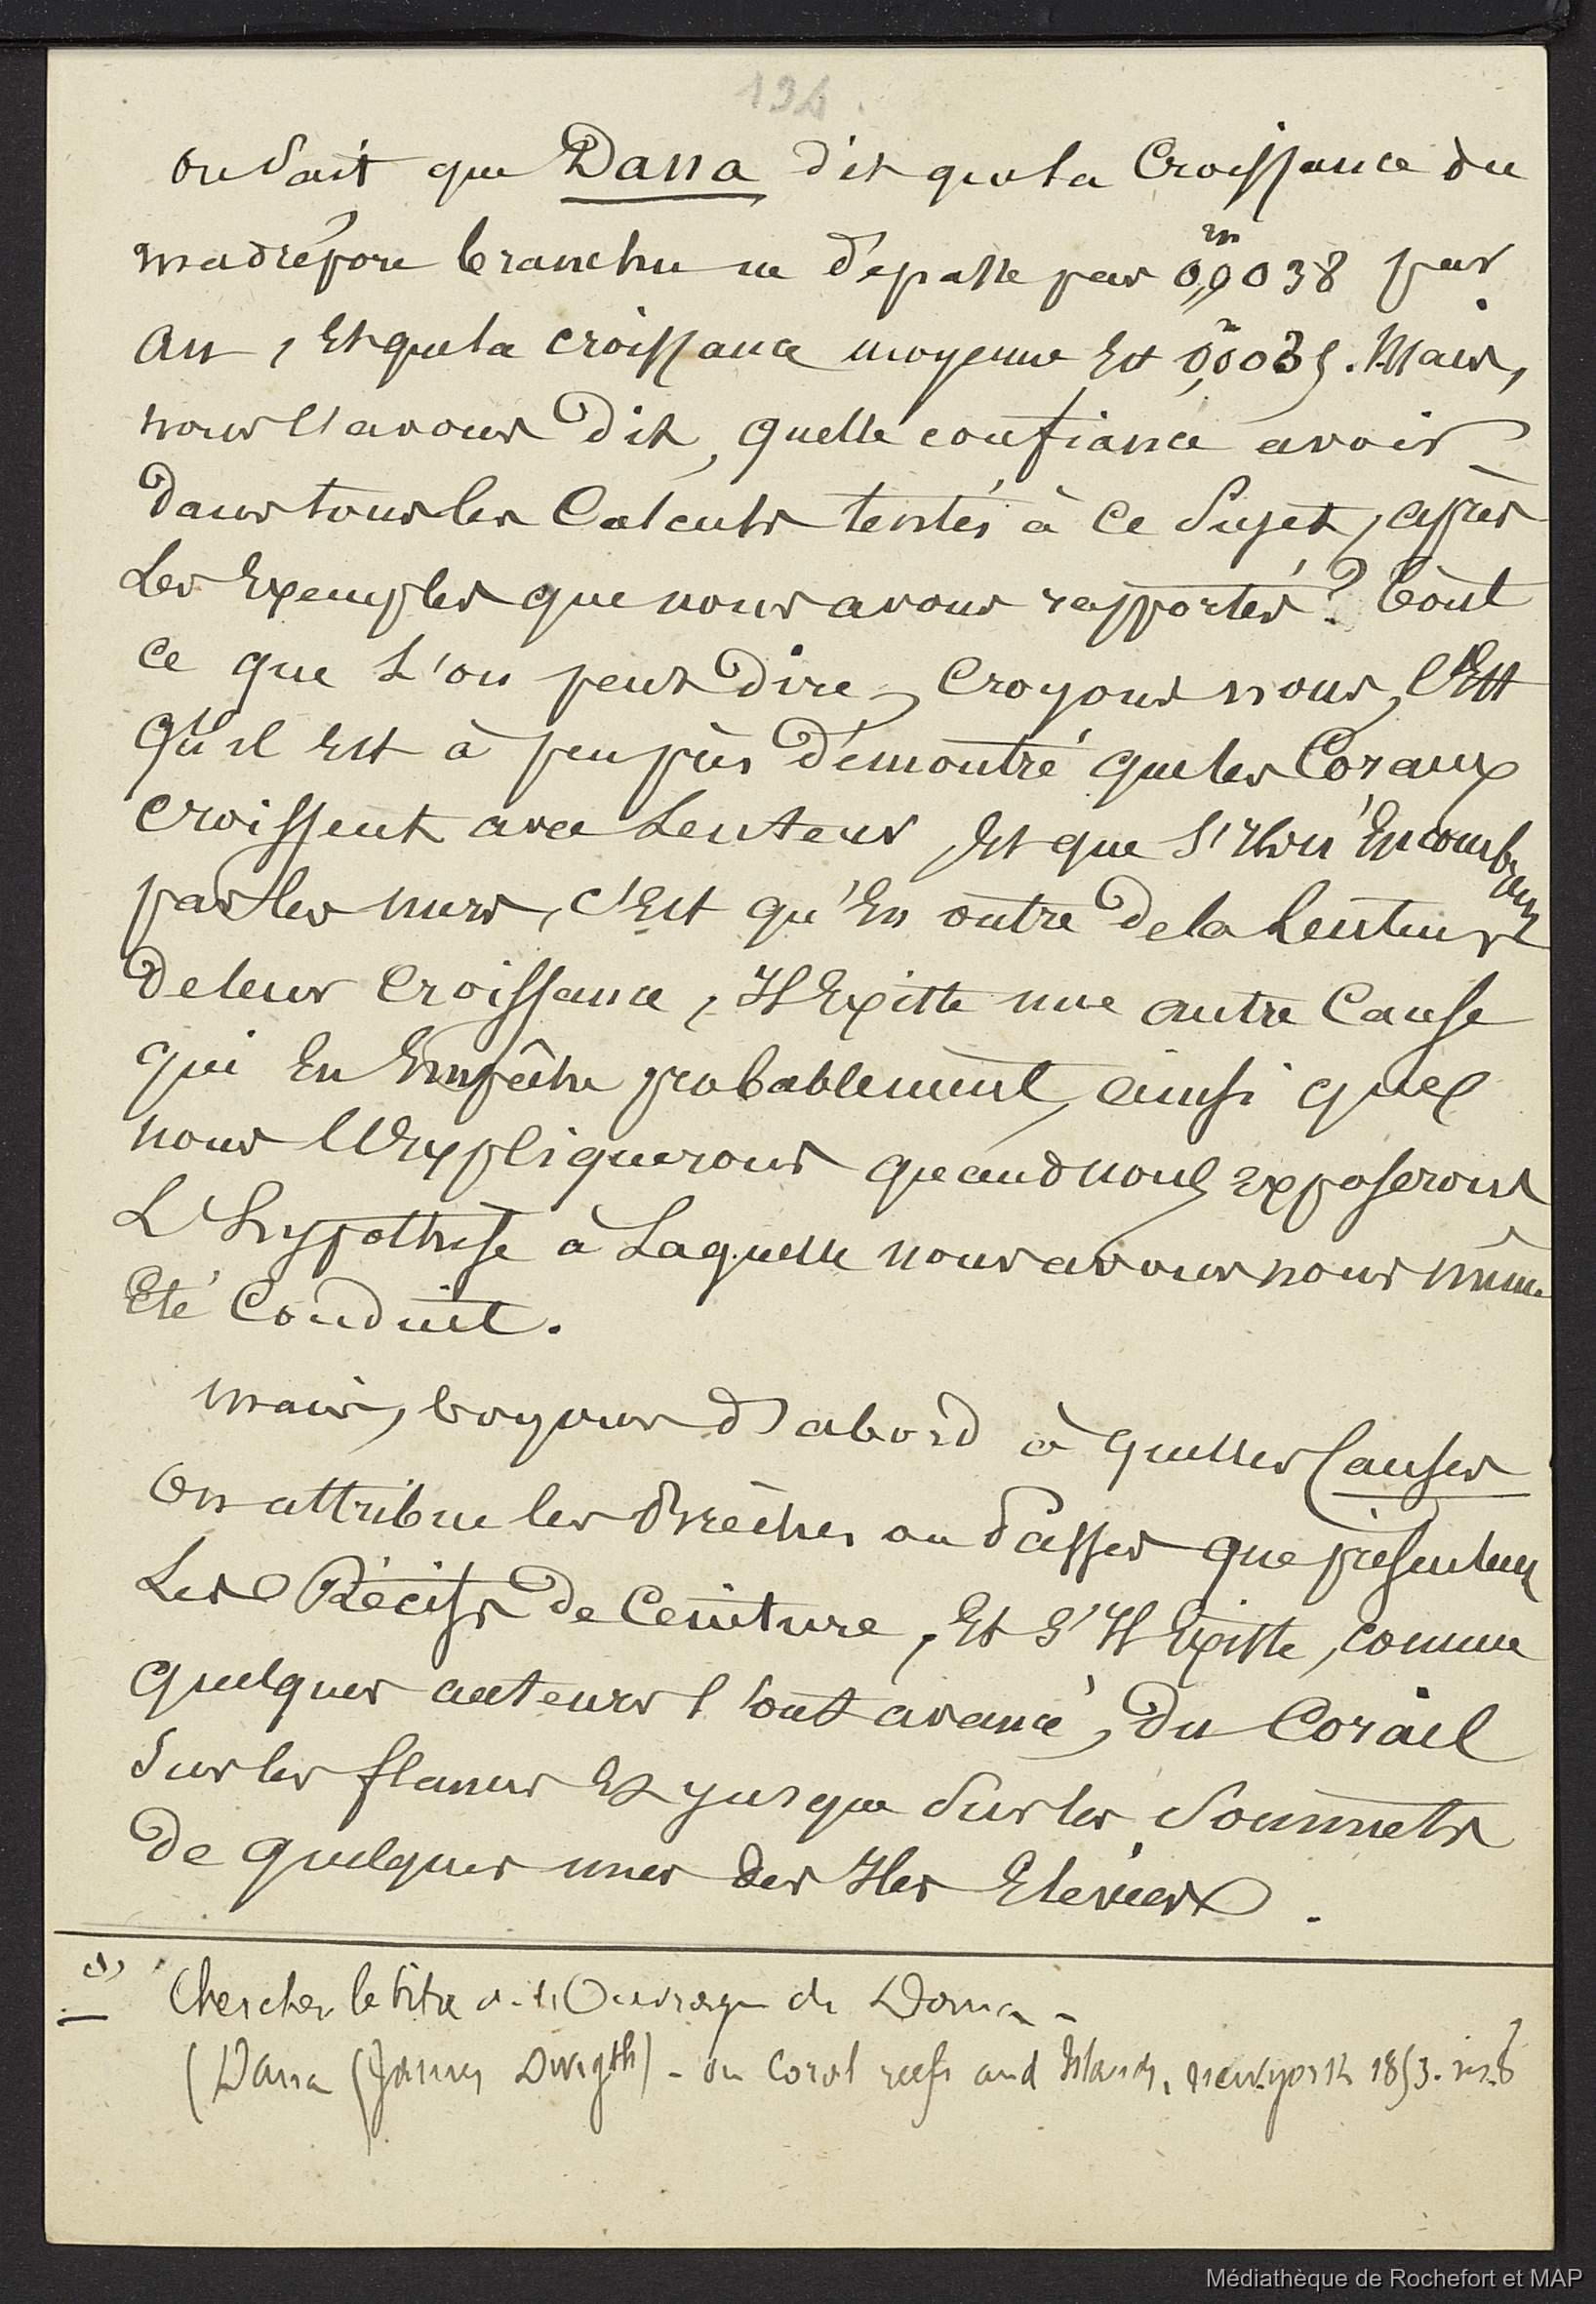 194.
on Sait que Dana dit que la Croissance du
madrépore branchu ne dépasse pas 0,m0038 par
an, Et que la croissance moyenne Est 0,m0035. Mais,
nous l'avons dit, quelle confiance avoir
dans tous les Calculs tentés à ce Sujet, après
Les Exemples que nous avons rapportés? Tout
ce que L'on peut dire, Croyons nous, C'Est
qu'il Est à peu près démontré que les Coraux
croissent avec Lenteur Et que S'Ils n'Encombrent
pas les mers, C'Est qu'En outre de la Lenteur
de leur Croissance, Il Existe une autre Cause
qui En Empêche probablement, ainsi que
nous l'Expliquerons quand nous exposerons
L'hypothèse à Laquelle nous avons nous même
Eté Conduit.
Mais, voyons d'abord à quelles Causes
On attribue les Brèches ou Passes que présentent
Les Récifs de Ceinture, Et S'Il Existe, comme
quelques auteurs l'ont avancé, du Corail
Sur les flancs Et jusque Sur les Sommets
de quelques unes des Iles Elevées.
(1) Chercher le titre de l'Ouvrage de Dana -
(Dana (James Dwigth) - on Coral reefs and Islands, New-york 1853. in-8
Médiathèque de Rochefort et MAP